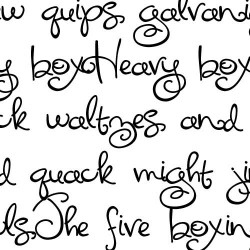 w quips galvani
y boxHeavy box
ck waltzes and
d quack might ji
ls.The five boxin